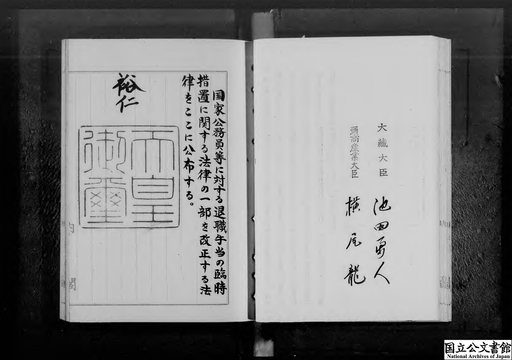 大藏大臣 池田勇人
通商産業大臣 横尾龍
国家公務員等に対する退職手当の臨時
措置に関する法律の一部を改正する法
律をここに公布する。
裕仁
天皇
御璽
国立公文書館
National Archives of Japan